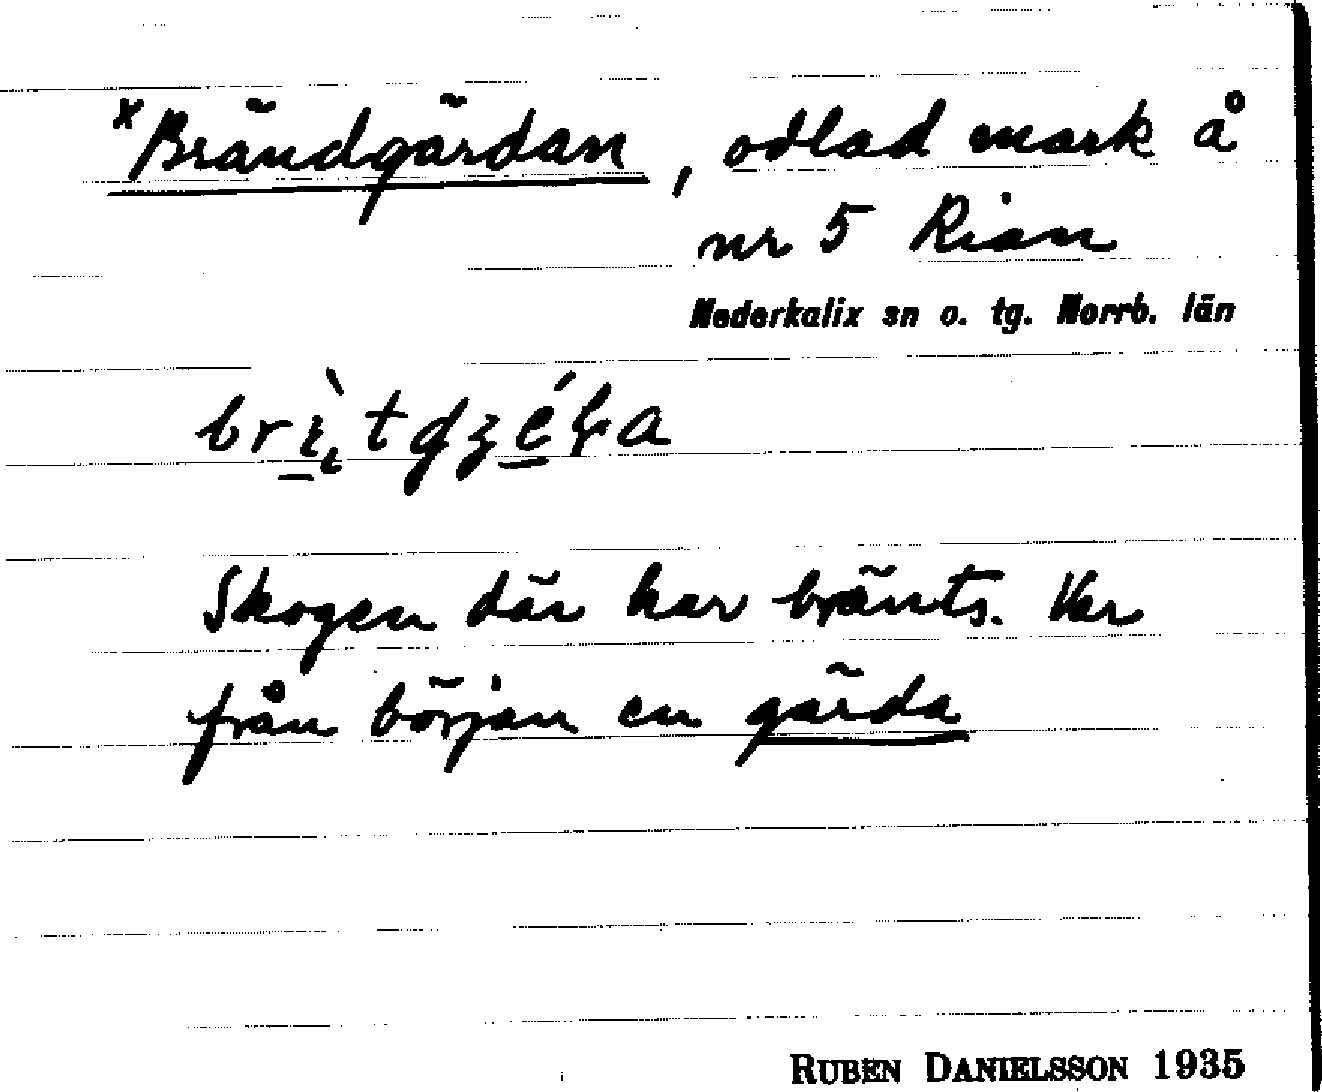 ×Brändgärdan, odlad mark å
nr 5 Rian
Nederkalix sn o. tg. Norrb. län
Skogen där har bränts. Var
från början en gärda
RUBEN DANIELSSON 1935